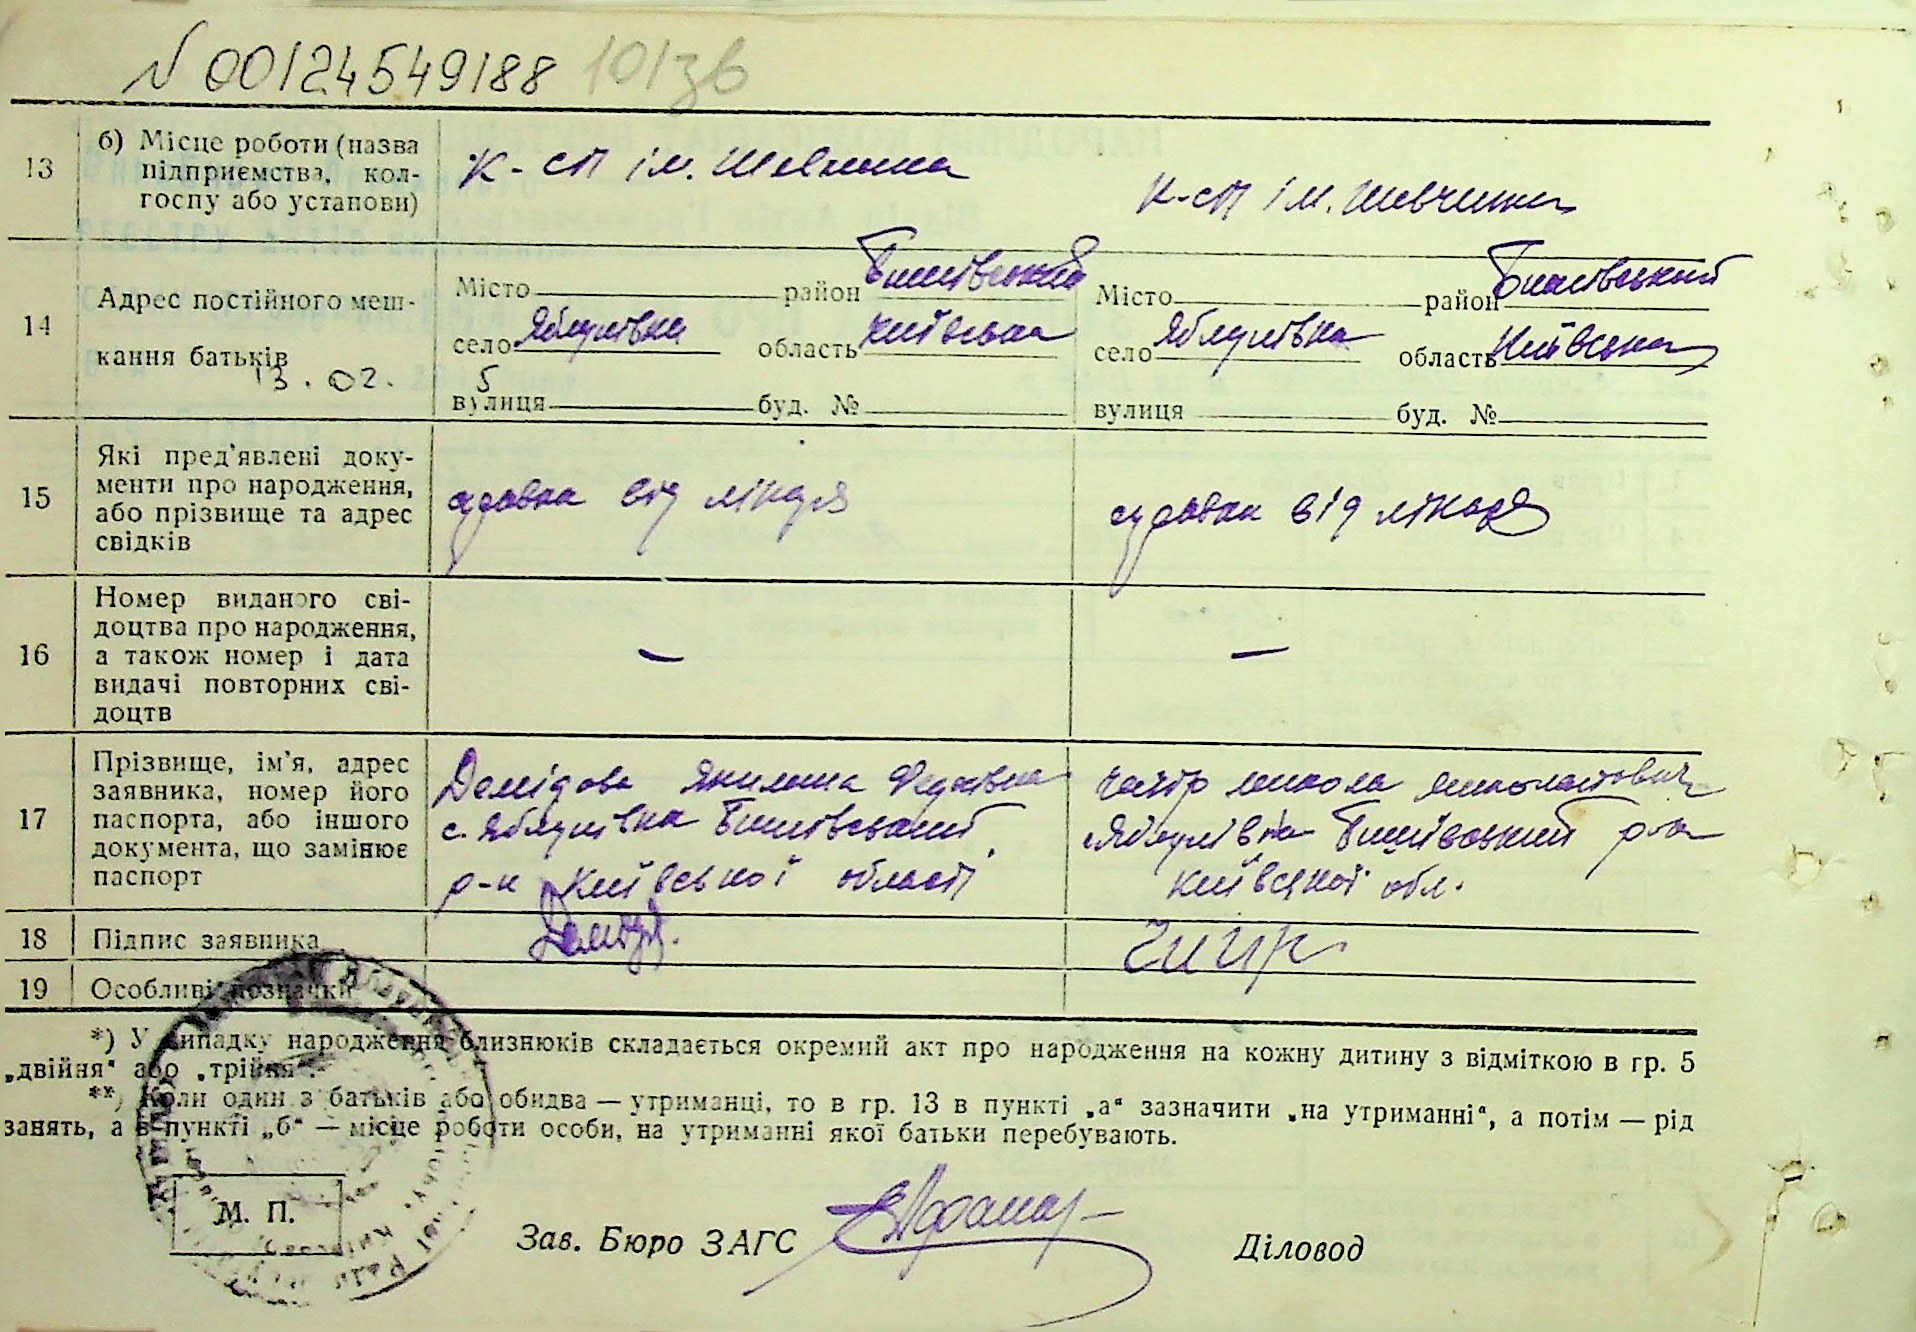 № 00124549188 101зв
13 б) Місце роботи (назва підприємства, кол-госпу або установи)
К-сп ім. Шевченка
К-сп ім. Шевченка
14 Адрес постійного меш-
кання батьків
Місто район Бишівський
село Яблунівка область Київська
вулиця буд. №
Місто район Бишівський
село Яблунівка область Київська
вулиця буд. №
13.02. 5
15 Які пред'явлені доку-
менти про народження,
або прізвище та адрес
свідків
справка від лікаря
справка від лікаря
16 Номер виданого сві-
доцтва про народження,
а також номер і дата
видачі повторних сві-
доцтв
—
—
17 Прізвище, ім'я, адрес
заявника, номер його
паспорта, або іншого
документа, що замінює
паспорт
Демідова Федорівна
с. Яблунівка Бишівський
р-н Київської області
Микола Миколайович
с. Яблунівка Бишівський р-н
Київської обл.
18 Підпис заявника
19 Особливі позначки
*) У випадку народження близнюків складається окремий акт про народження на кожну дитину з відміткою в гр. 5
„двійня“ або „трійня“.
**) Коли один з батьків або обидва — утриманці, то в гр. 13 в пункті „а“ зазначити „на утриманні“, а потім — рід
занять, а в пункті „б“ — місце роботи особи, на утриманні якої батьки перебувають.
М. П.
Зав. Бюро ЗАГС
Діловод